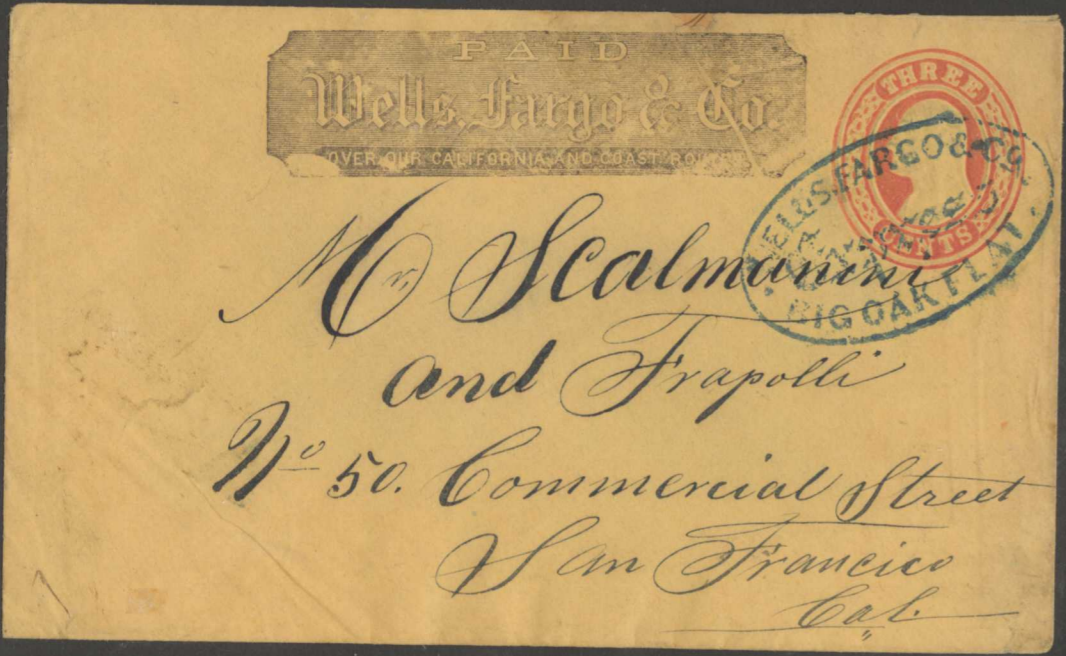 PAID
Wells, Fargo & Co.
OVER OUR CALIFORNIA AND COAST ROUTES
THREE
CENTS
WELLS, FARGO & CO.
BIG OAK FLAT
Mr Scalmanini
and Frapolli
No 50. Commercial Street
San Francico
Cal.